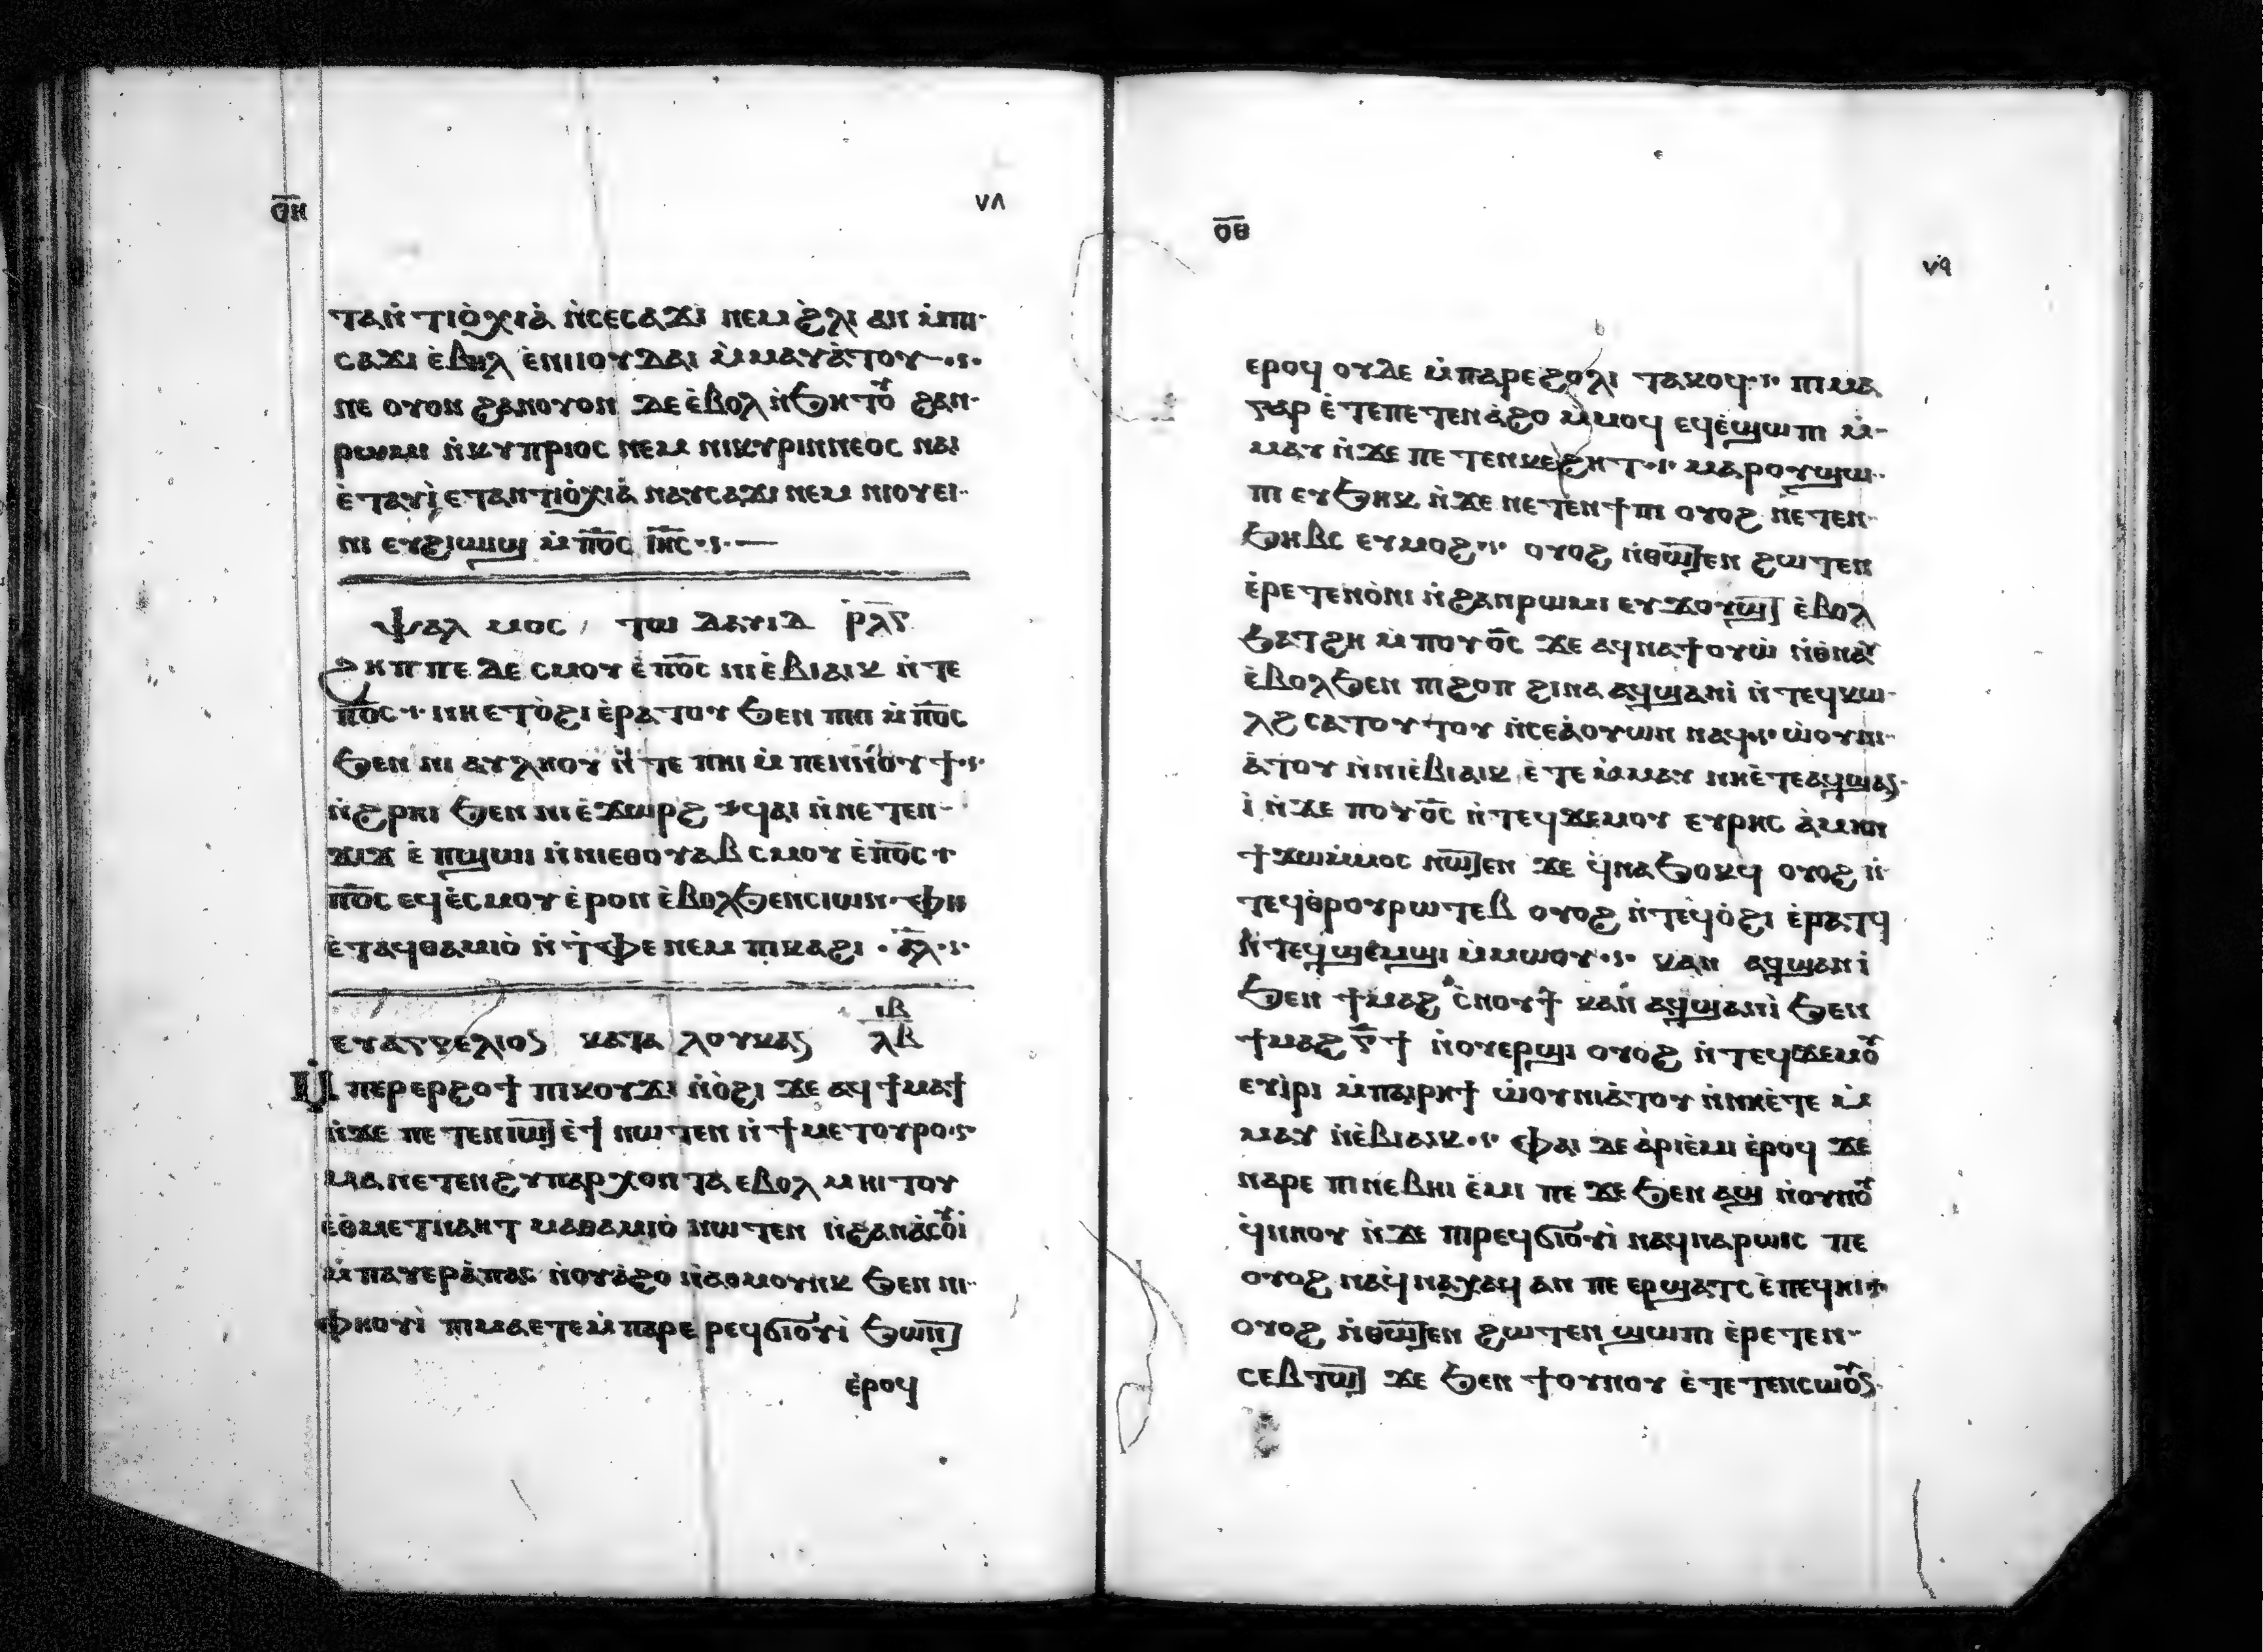 ⲟ̅ⲏ̅ ٧٨
ⲧⲁⲛ̀ⲧⲓⲟ̀ⲭⲓⲁ̀ ⲛ̀ⲥⲉⲥⲁϫⲓ ⲛⲉⲙ ϩⲗⲓ ⲁⲛ ⲙ̀ⲡⲓ
ⲥⲁϫⲓ ⲉ̀ⲃⲏⲗ ⲉ̀ⲛⲓⲓⲟⲩⲇⲁⲓ ⲙ̀ⲙⲁⲩⲁ̀ⲧⲟⲩ
ⲛⲉ ⲟⲩⲟⲛ ϩⲁⲛⲟⲩⲟⲛ ⲇⲉ ⲉ̀ⲃⲟⲗ ⲛ̀ϧⲏⲧⲟⲩ ϩⲁⲛ
ⲣⲱⲙⲓ ⲛ̀ⲕⲩⲡⲣⲓⲟⲥ ⲛⲉⲙ ⲛⲓⲕⲩⲣⲓⲛⲛⲉⲟⲥ ⲛⲁⲓ
ⲉ̀ⲧⲁⲩⲓ̀ ⲉⲧⲁⲛⲧⲓⲟ̀ⲭⲓⲁ̀ ⲛⲁⲩⲥⲁϫⲓ ⲛⲉⲙ ⲛⲓⲟⲩⲉⲓ
ⲛⲓ ⲉⲩϩⲓϣⲓϣ ⲙ̀ⲡ̅ⲟ̅ⲥ̅ ⲓ̅ⲏ̅ⲥ̅
ⲯⲁⲗⲙⲟⲥ ⲧⲱ ⲇⲁⲩⲓⲇ ⲣ̅ⲗ̅ⲅ̅
ϩⲏⲡⲡⲉ ⲇⲉ ⲥⲙⲟⲩ ⲉ̀ⲡ̅ⲟ̅ⲥ̅ ⲛⲓⲉ̀ⲃⲓⲁⲓⲕ ⲛ̀ⲧⲉ
ⲡ̅ⲟ̅ⲥ̅ ⲛⲏⲉⲧⲟ̀ϩⲓ ⲉ̀ⲣⲁⲧⲟⲩ ϧⲉⲛ ⲡⲏⲓ ⲙ̀ⲡ̅ⲟ̅ⲥ̅
ϧⲉⲛ ⲛⲓⲁⲩⲗⲏⲟⲩ ⲛ̀ⲧⲉ ⲡⲏⲓ ⲙ̀ⲡⲉⲛⲛⲟⲩϯ
ⲛ̀ϩⲣⲏⲓ ϧⲉⲛ ⲛⲓⲉ̀ϫⲱⲣϩ ϥⲁⲓ ⲛ̀ⲛⲉⲧⲉⲛ
ϫⲓϫ ⲉ̀ⲡϣⲱⲓ ⲛ̀ⲛⲓⲉⲑⲟⲩⲁⲃ ⲥⲙⲟⲩ ⲉ̀ⲡ̅ⲟ̅ⲥ̅
ⲡ̅ⲟ̅ⲥ̅ ⲉϥⲉ̀ⲥⲙⲟⲩ ⲉ̀ⲣⲟⲛ ⲉ̀ⲃⲟⲗϧⲉⲛⲥⲓⲱⲛ ⲫⲏ
ⲉ̀ⲧⲁϥⲑⲁⲙⲓⲟ̀ ⲛ̀ⲧ̀ⲫⲉ ⲛⲉⲙ ⲡⲕⲁϩⲓ ⲁ̅ⲗ̅
ⲉⲩⲁⲅⲅⲉⲗⲓⲟⲥ ⲕⲁⲧⲁ ⲗⲟⲩⲕⲁⲥ ⲓ̅ⲃ̅ ⲗⲃ
ⲙ̀ⲡⲉⲣⲉⲣϩⲟϯ ⲡⲓⲕⲟⲩϫⲓ ⲛ̀ⲟ̀ϩⲓ ϫⲉ ⲁϥϯⲙⲁϯ
ⲛ̀ϫⲉ ⲡⲉⲧⲉⲛⲓⲱⲧ ⲉ̀ϯ ⲛⲱⲧⲉⲛ ⲛ̀ϯⲙⲉⲧⲟⲩⲣⲟ
ⲙⲁ ⲛⲉⲧⲉⲛϩⲩⲡⲁⲣⲭⲟⲛⲧⲁ ⲉⲃⲟⲗ ⲙⲏⲓⲧⲟⲩ
ⲉ̀ⲑⲙⲉⲧⲛⲁⲏⲧ ⲙⲁⲑⲁⲙⲓⲟ̀ ⲛⲱⲧⲉⲛ ⲛ̀ϩⲁⲛⲁ̀ⲥⲟⲩⲓ̀
ⲙ̀ⲡⲁⲩⲉⲣⲁ̀ⲡⲁⲥ ⲛ̀ⲟⲩⲁ̀ϩⲟ ⲛ̀ⲁⲑⲙⲟⲩⲛⲕ ϧⲉⲛ ⲛⲓ
ⲫⲏⲟⲩⲓ̀ ⲡⲓⲙⲁ ⲉⲧⲉⲙ̀ⲡⲁⲣⲉ ⲣⲉϥϭⲓⲟⲩⲓ̀ ϧⲱⲛⲧ
ⲉ̀ⲣⲟϥ
ⲟ̅ⲑ̅ ٧٩
ⲉⲣⲟϥ ⲟⲩⲇⲉ ⲙ̀ⲡⲁⲣⲉϩⲟⲗⲓ ⲧⲁⲕⲟϥ ⲡⲓⲙⲁ
ⲅⲁⲣ ⲉ̀ⲧⲉⲡⲉⲧⲉⲛⲁ̀ϩⲟ ⲙ̀ⲙⲟϥ ⲉϥⲉ̀ϣⲱⲡⲓ ⲙ̀
ⲙⲁⲩ ⲛ̀ϫⲉ ⲡⲉⲧⲉⲛⲕⲉϩⲏⲧ ⲙⲁⲣⲟⲩϣⲱ
ⲡⲓ ⲉⲩϧⲏⲕ ⲛ̀ϫⲉ ⲛⲉⲧⲉⲛϯⲡⲓ ⲟⲩⲟϩ ⲛⲉⲧⲉⲛ
ϧⲏⲃⲥ ⲉⲩⲙⲟϩ ⲟⲩⲟϩ ⲛ̀ⲑⲱⲧⲉⲛ ϩⲱⲧⲉⲛ
ⲉ̀ⲣⲉⲧⲉⲛⲟ̀ⲛⲓ ⲛ̀ϩⲁⲛⲣⲱⲙⲓ ⲉⲩϫⲟⲩϣⲧ ⲉ̀ⲃⲟⲗ
ϧⲁⲧϩⲏ ⲙ̀ⲡⲟⲩⲟ̅ⲥ̅ ϫⲉ ⲁϥⲛⲁϯⲟⲩⲱ̀ ⲛ̀ⲑⲛⲁⲩ
ⲉ̀ⲃⲟⲗϧⲉⲛ ⲡⲓϩⲟⲡ ϩⲓⲛⲁ ⲁϥϣⲁⲛⲓ̀ ⲛ̀ⲧⲉϥⲕⲱ
ⲗϩ ⲥⲁⲧⲟⲩⲧⲟⲩ ⲛ̀ⲥⲉⲁ̀ⲟⲩⲱⲛ ⲛⲁϥ ⲱ̀ⲟⲩⲛⲓ
ⲁ̀ⲧⲟⲩ ⲛ̀ⲛⲓⲉ̀ⲃⲓⲁⲓⲕ ⲉ̀ⲧⲉ ⲙ̀ⲙⲁⲩ ⲛⲏⲉ̀ⲧⲉⲁϥϣⲁⲛ
ⲓ̀ ⲛ̀ϫⲉ ⲡⲟⲩⲟ̅ⲥ̅ ⲛ̀ⲧⲉϥϫⲉⲙⲟⲩ ⲉⲩⲣⲏⲥ ⲁ̀ⲙⲏⲛ
ϯϫⲱⲙ̀ⲙⲟⲥ ⲛⲱⲧⲉⲛ ϫⲉ ϥ̀ⲛⲁϧⲟⲕϥ ⲟⲩⲟϩ ⲛ̀
ⲧⲉϥⲑⲣⲟⲩⲣⲱⲧⲉⲃ ⲟⲩⲟϩ ⲛ̀ⲧⲉϥⲟ̀ϩⲓ ⲉ̀ⲣⲁⲧϥ
ⲛ̀ⲧⲉϥϣⲉⲙϣⲓ ⲙ̀ⲙⲱⲟⲩ ⲕⲁⲛ ⲁϥϣⲁⲛⲓ̀
ϧⲉⲛ ϯⲙⲁϩ ⲥ̀ⲛⲟⲩϯ ⲕⲁⲛ ⲁϥϣⲁⲛⲓ̀ ϧⲉⲛ
ϯⲙⲁϩ ⲅ̅ϯ ⲛ̀ⲟⲩⲉⲣϣⲓ ⲟⲩⲟϩ ⲛ̀ⲧⲉϥϫⲉⲙⲟⲩ
ⲉⲩⲓ̀ⲣⲓ ⲙ̀ⲡⲁⲓⲣⲏϯ ⲱ̀ⲟⲩⲛⲓⲁ̀ⲧⲟⲩ ⲛ̀ⲛⲏⲉ̀ⲧⲉ ⲙ̀
ⲙⲁⲩ ⲛ̀ⲉ̀ⲃⲓⲁⲓⲕ ⲫⲁⲓ ⲇⲉ ⲁ̀ⲣⲓⲉ̀ⲙⲓ ⲉ̀ⲣⲟϥ ϫⲉ
ⲛⲁⲣⲉ ⲡⲓⲛⲉⲃⲏⲓ ⲉ̀ⲙⲓ ⲡⲉ ϫⲉ ϧⲉⲛ ⲁϣ ⲛ̀ⲟⲩⲛⲟⲩ
ϥ̀ⲛⲏⲟⲩ ⲛ̀ϫⲉ ⲡⲓⲣⲉϥϭⲓⲟⲩⲓ̀ ⲛⲁϥⲛⲁⲣⲱⲓⲥ ⲡⲉ
ⲟⲩⲟϩ ⲛⲁϥ̀ⲛⲁⲭⲁϥ ⲁⲛ ⲡⲉ ⲉⲣϣⲁⲧⲥ ⲉ̀ⲡⲉϥⲏⲓ
ⲟⲩⲟϩ ⲛ̀ⲑⲱⲧⲉⲛ ϩⲱⲧⲉⲛ ϣⲱⲡⲓ ⲉ̀ⲣⲉⲧⲉⲛ
ⲥⲉⲃⲧⲱⲧ ϫⲉ ϧⲉⲛ ϯⲟⲩⲛⲟⲩ ⲉ̀ⲧⲉⲧⲉⲛⲥⲱⲟⲩⲛ